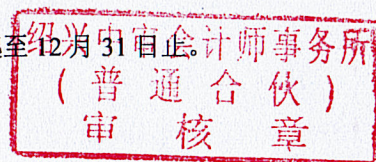 至12月31日止。
绍兴中审会计师事务所
(普通合伙)
审核章